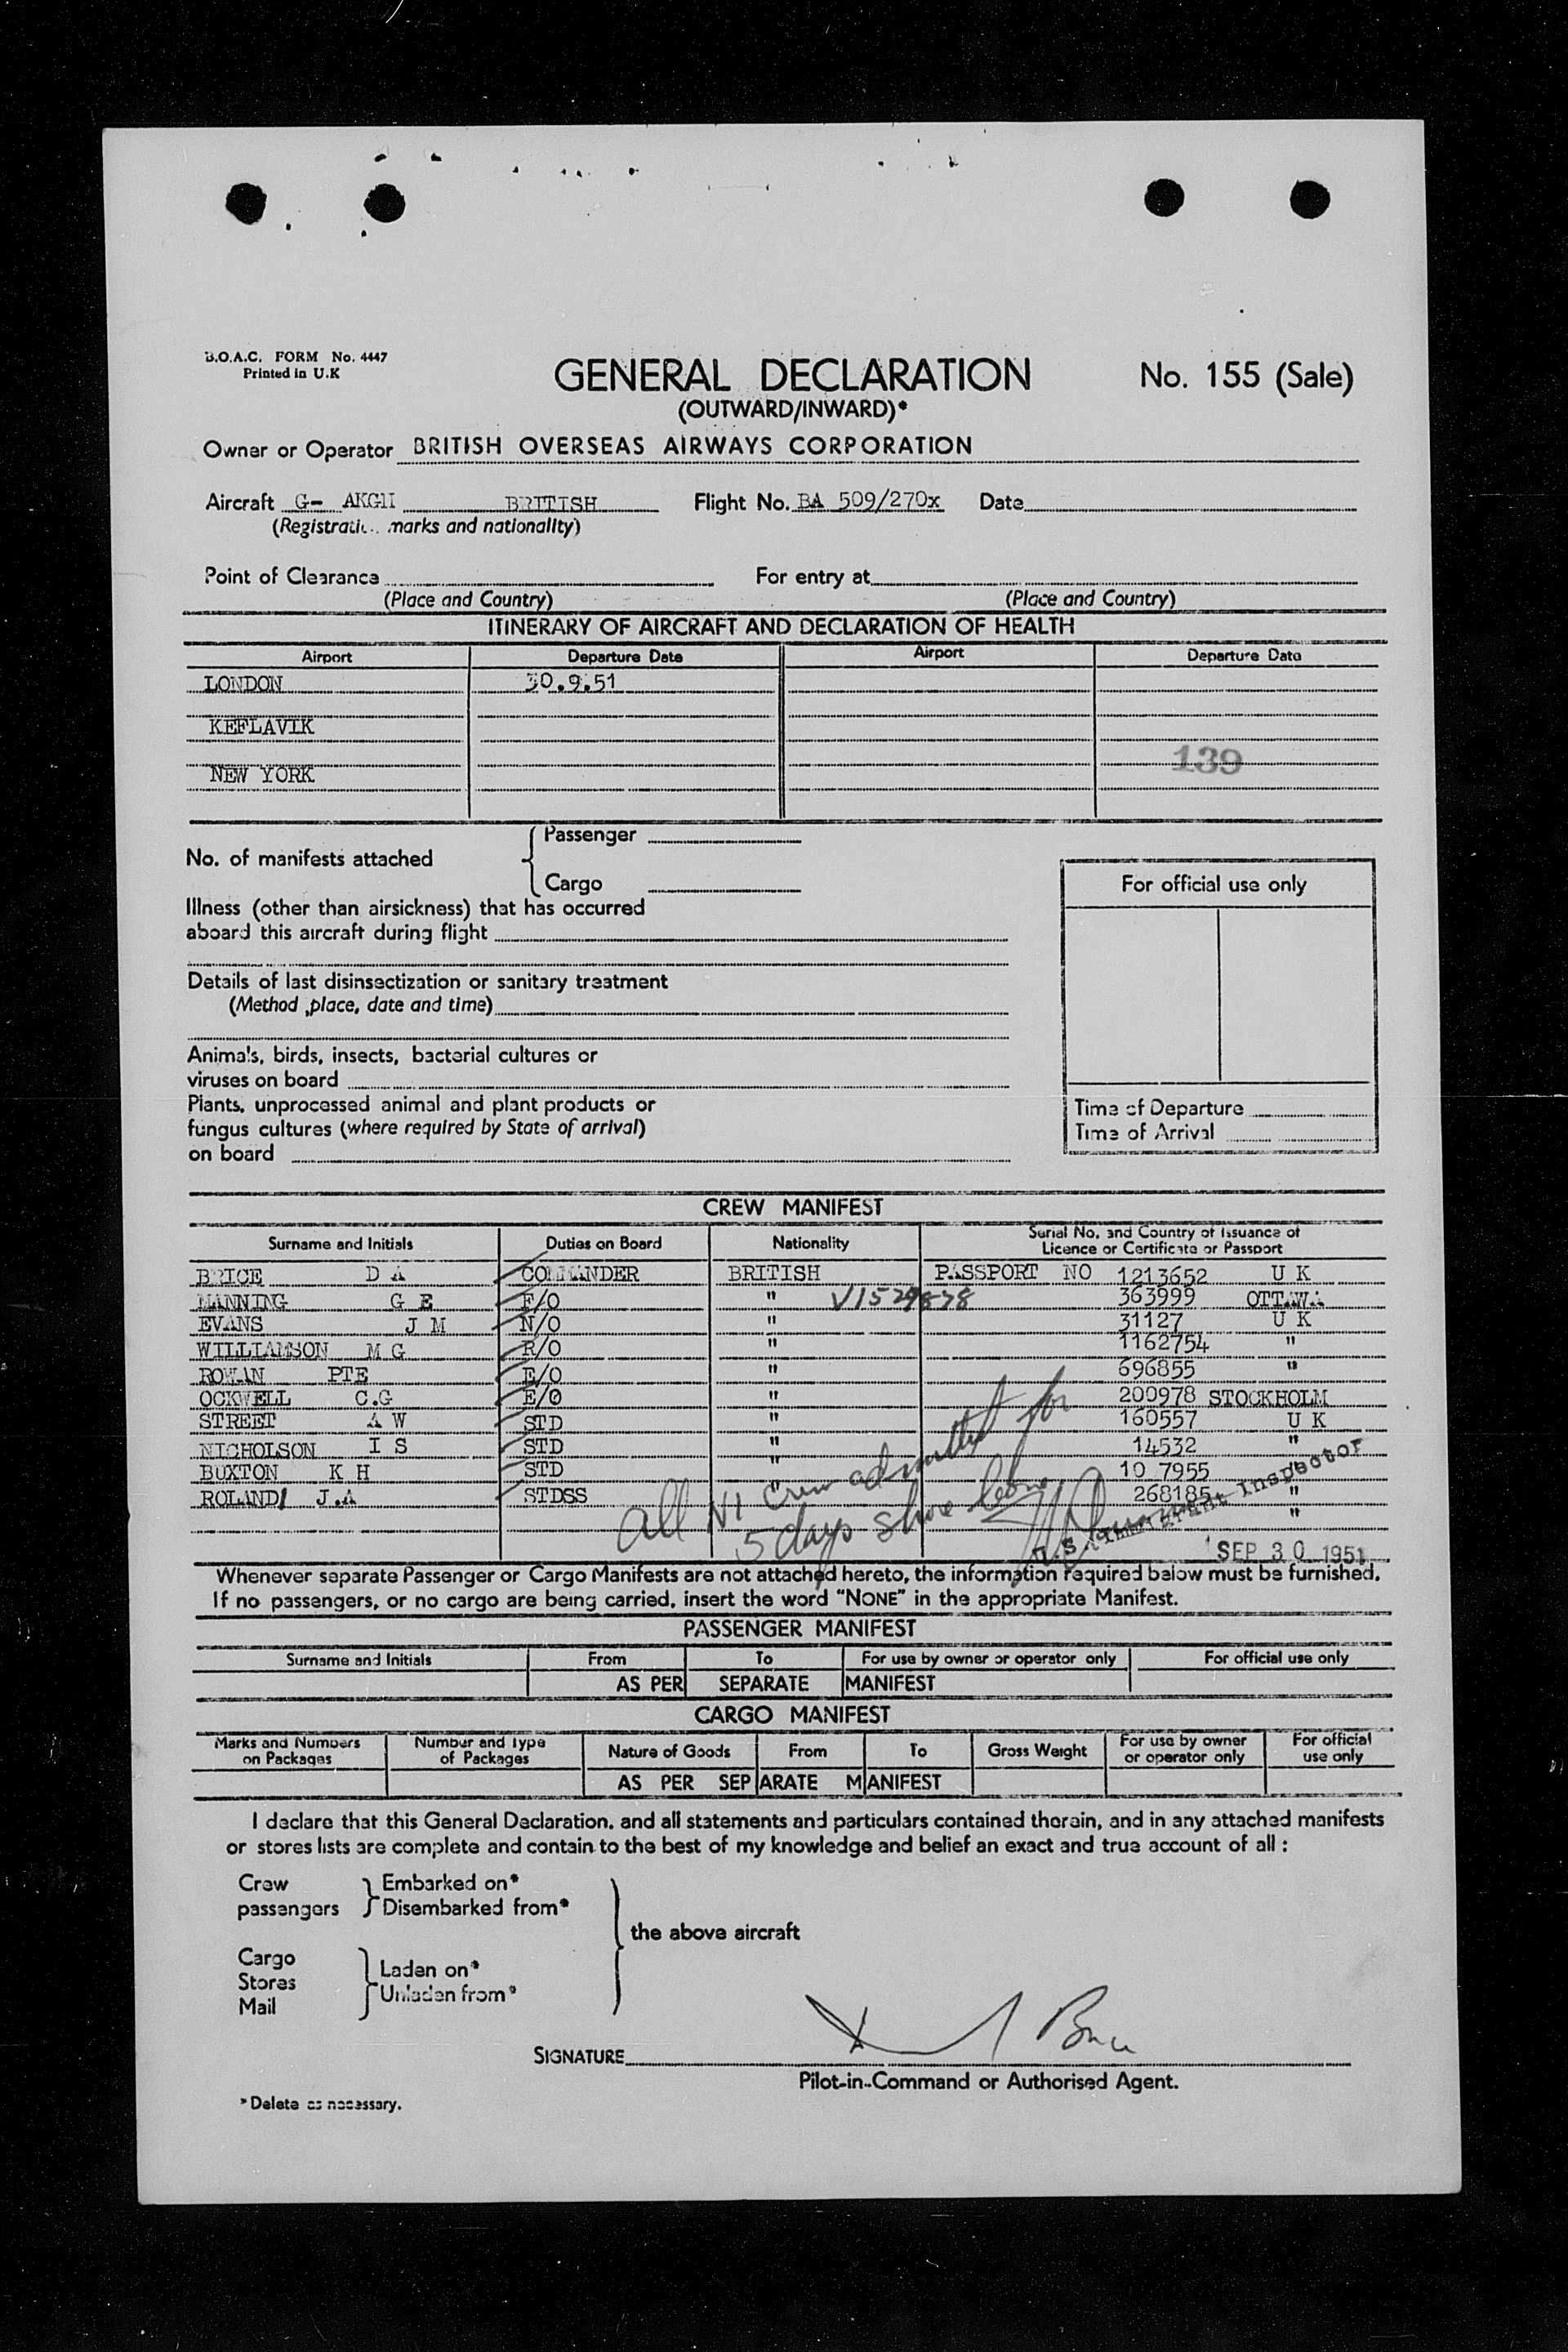 B.O.A.C. FORM No. 4447
Printed in U.K
GENERAL DECLARATION No. 155 (Sale)
(OUTWARD/INWARD)*
Owner or Operator BRITISH OVERSEAS AIRWAYS CORPORATION
Aircraft G- AKGH BRITISH Flight No. BA 509/270x Date
(Registration marks and nationality)
Point of Clearance For entry at
(Place and Country) (Place and Country)
ITINERARY OF AIRCRAFT AND DECLARATION OF HEALTH
Airport Departure Date Airport Departure Date
LONDON 30.9.51
KEFLAVIK
139
NEW YORK
No. of manifests attached { Passenger
Cargo
For official use only
Illness (other than airsickness) that has occurred
aboard this aircraft during flight
Details of last disinsectization or sanitary treatment
(Method ,place, date and time)
Animals, birds, insects, bacterial cultures or
viruses on board
Plants, unprocessed animal and plant products or
fungus cultures (where required by State of arrival)
on board
Time of Departure
Time of Arrival
CREW MANIFEST
Surname and Initials Duties on Board Nationality Serial No. and Country of Issuance of Licence or Certificate or Passport
BRICE D A COMMANDER BRITISH PASSPORT NO 1213652 U K
MANNING G E F/O " V1529878 363999 OTTAWA
EVANS J M N/O " 31127 U K
WILLIAMSON M G R/O " 1162754 "
ROWAN PTE E/O " 696855 "
OCKWELL C.G E/O " 200978 STOCKHOLM
STREET A W STD " 160557 U K
NICHOLSON I S STD " 14532 "
BUXTON K H STD " 10 7955 "
ROLAND/ J.A STDSS " 268185 "
"
all N1 crew admitted for
5 days shore leave
U.S. Immigrant Inspector
SEP 30 1951
Whenever separate Passenger or Cargo Manifests are not attached hereto, the information required below must be furnished.
If no passengers, or no cargo are being carried, insert the word "NONE" in the appropriate Manifest.
PASSENGER MANIFEST
Surname and Initials From To For use by owner or operator only For official use only
AS PER SEPARATE MANIFEST
CARGO MANIFEST
Marks and Numbers on Packages Number and Type of Packages Nature of Goods From To Gross Weight For use by owner or operator only For official use only
AS PER SEPARATE MANIFEST
I declare that this General Declaration, and all statements and particulars contained therein, and in any attached manifests
or stores lists are complete and contain to the best of my knowledge and belief an exact and true account of all :
Crew } Embarked on*
passengers } Disembarked from*
the above aircraft
Cargo
Stores } Laden on*
Mail } Unladen from*
SIGNATURE Brice
Pilot-in-Command or Authorised Agent.
*Delete as necessary.